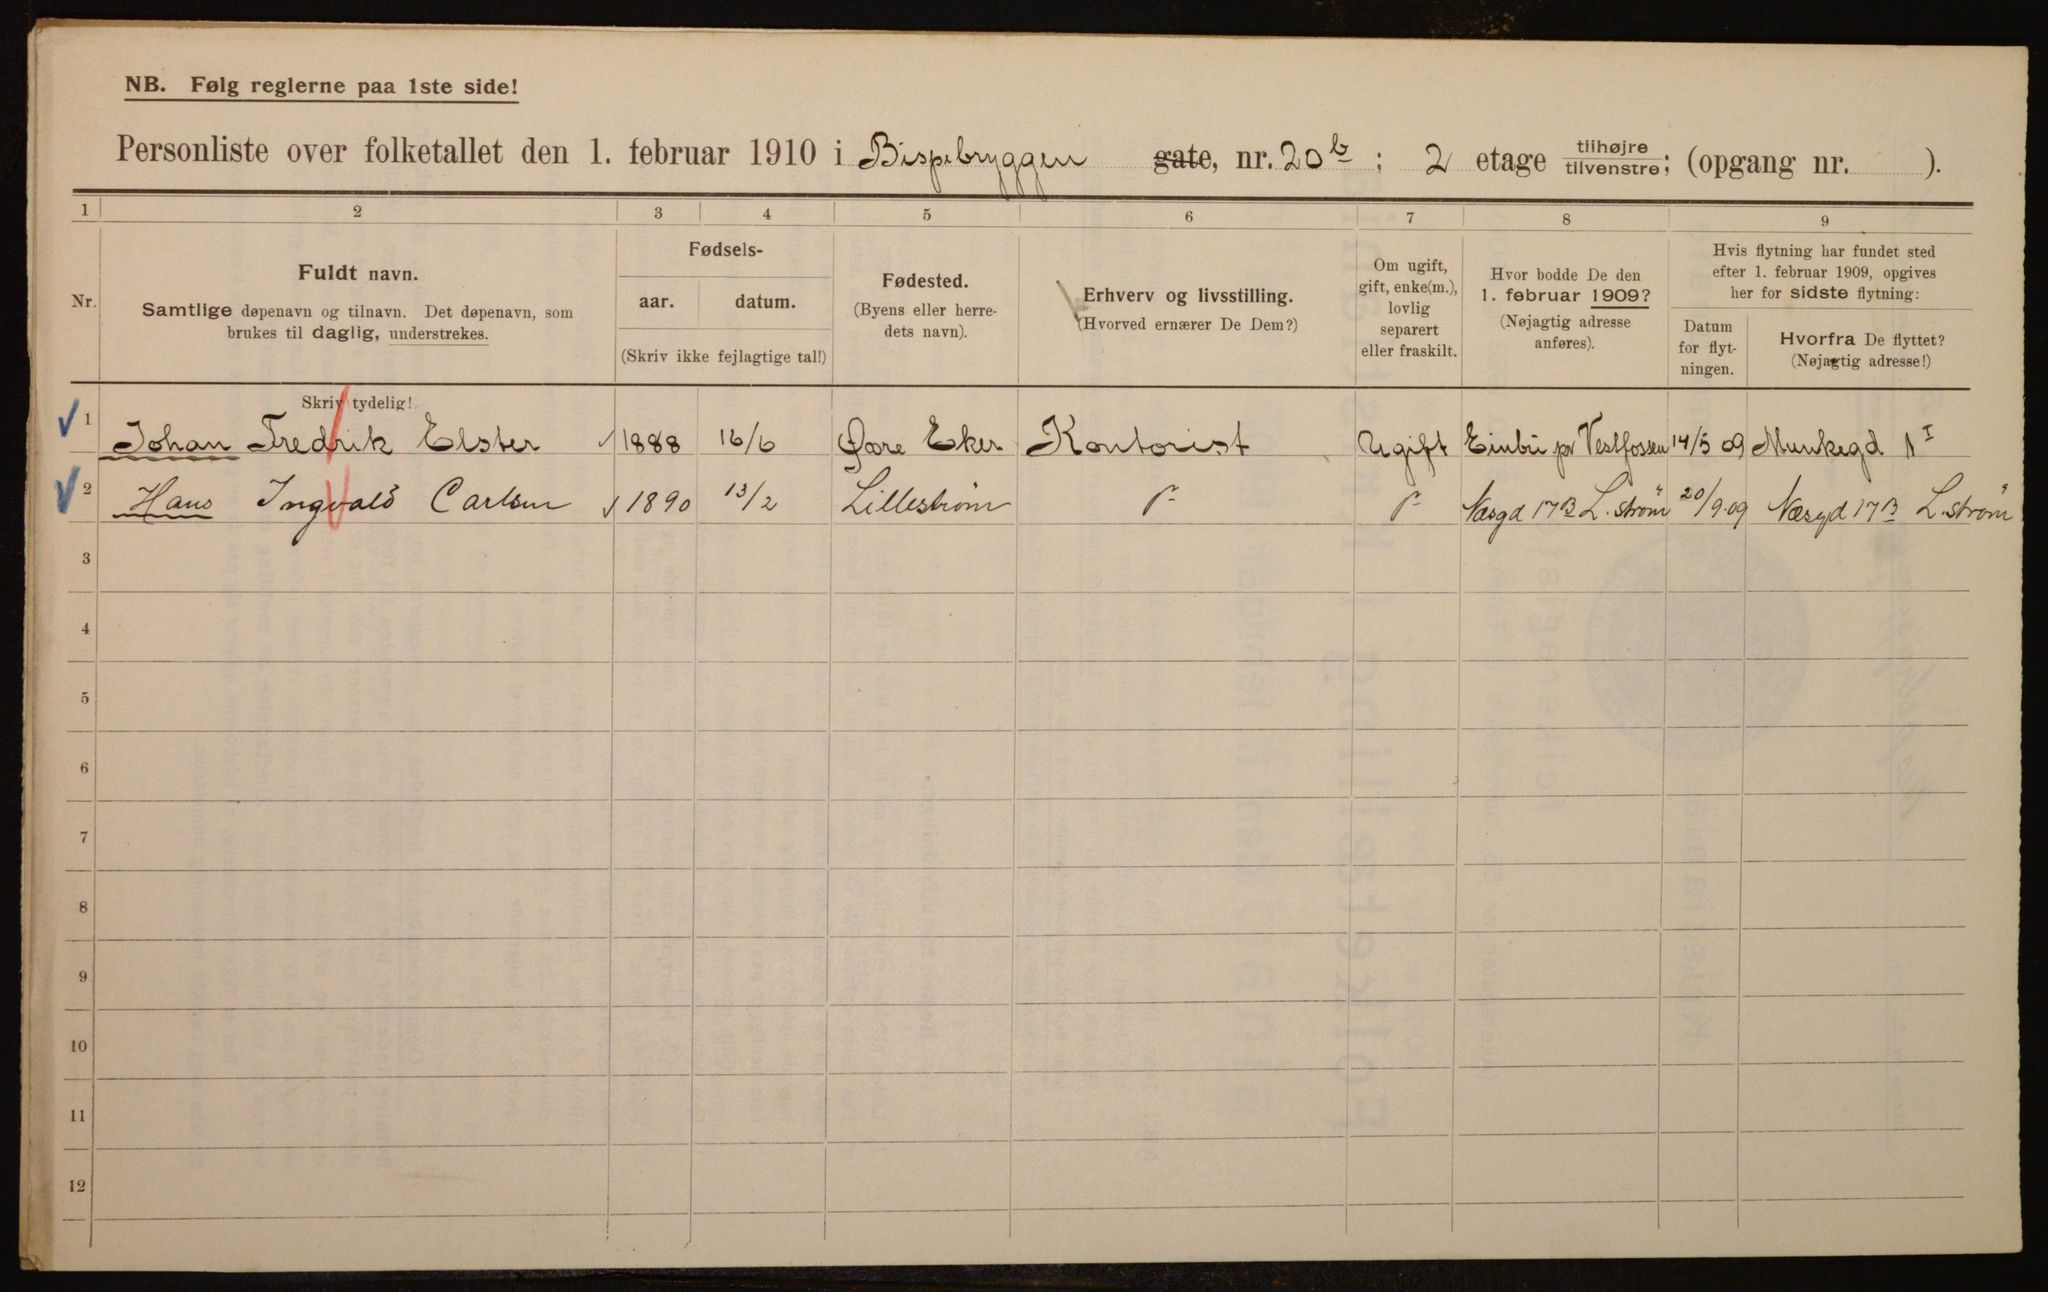 NB. Følg reglerne paa 1ste side!
Personliste over folketallet den 1. februar 1910 i Bispebryggen gate, nr. 20b; 2 etage tilhøjre/tilvenstre; (opgang nr. ).
1 2 3 4 5 6 7 8 9
Nr.
Fuldt navn.
Samtlige døpenavn og tilnavn. Det døpenavn, som
brukes til daglig, understrekes.
Fødsels-
aar. datum.
(Skriv ikke fejlagtige tal!)
Fødested.
(Byens eller herre-
dets navn).
Erhverv og livsstilling.
(Hvorved ernærer De Dem?)
Om ugift,
gift, enke(m.),
lovlig
separert
eller fraskilt.
Hvor bodde De den
1. februar 1909?
(Nøjagtig adresse
anføres).
Hvis flytning har fundet sted
efter 1. februar 1909, opgives
her for sidste flytning:
Datum
for flyt-
ningen.
Hvorfra De flyttet?
(Nøjagtig adresse!)
Skriv tydelig!
1 Johan Fredrik Elster 1888 16/6 Øvre Eker Kontorist Ugift pr Vestfossen 14/5 09 Munkegd 1 I
2 Hans Ingvald Carlsen 1890 13/2 Lillestrøm Næsgd 17B L.strøm 20/9.09 Næsgd 17B L.strøm
3
4
5
6
7
8
9
10
11
12